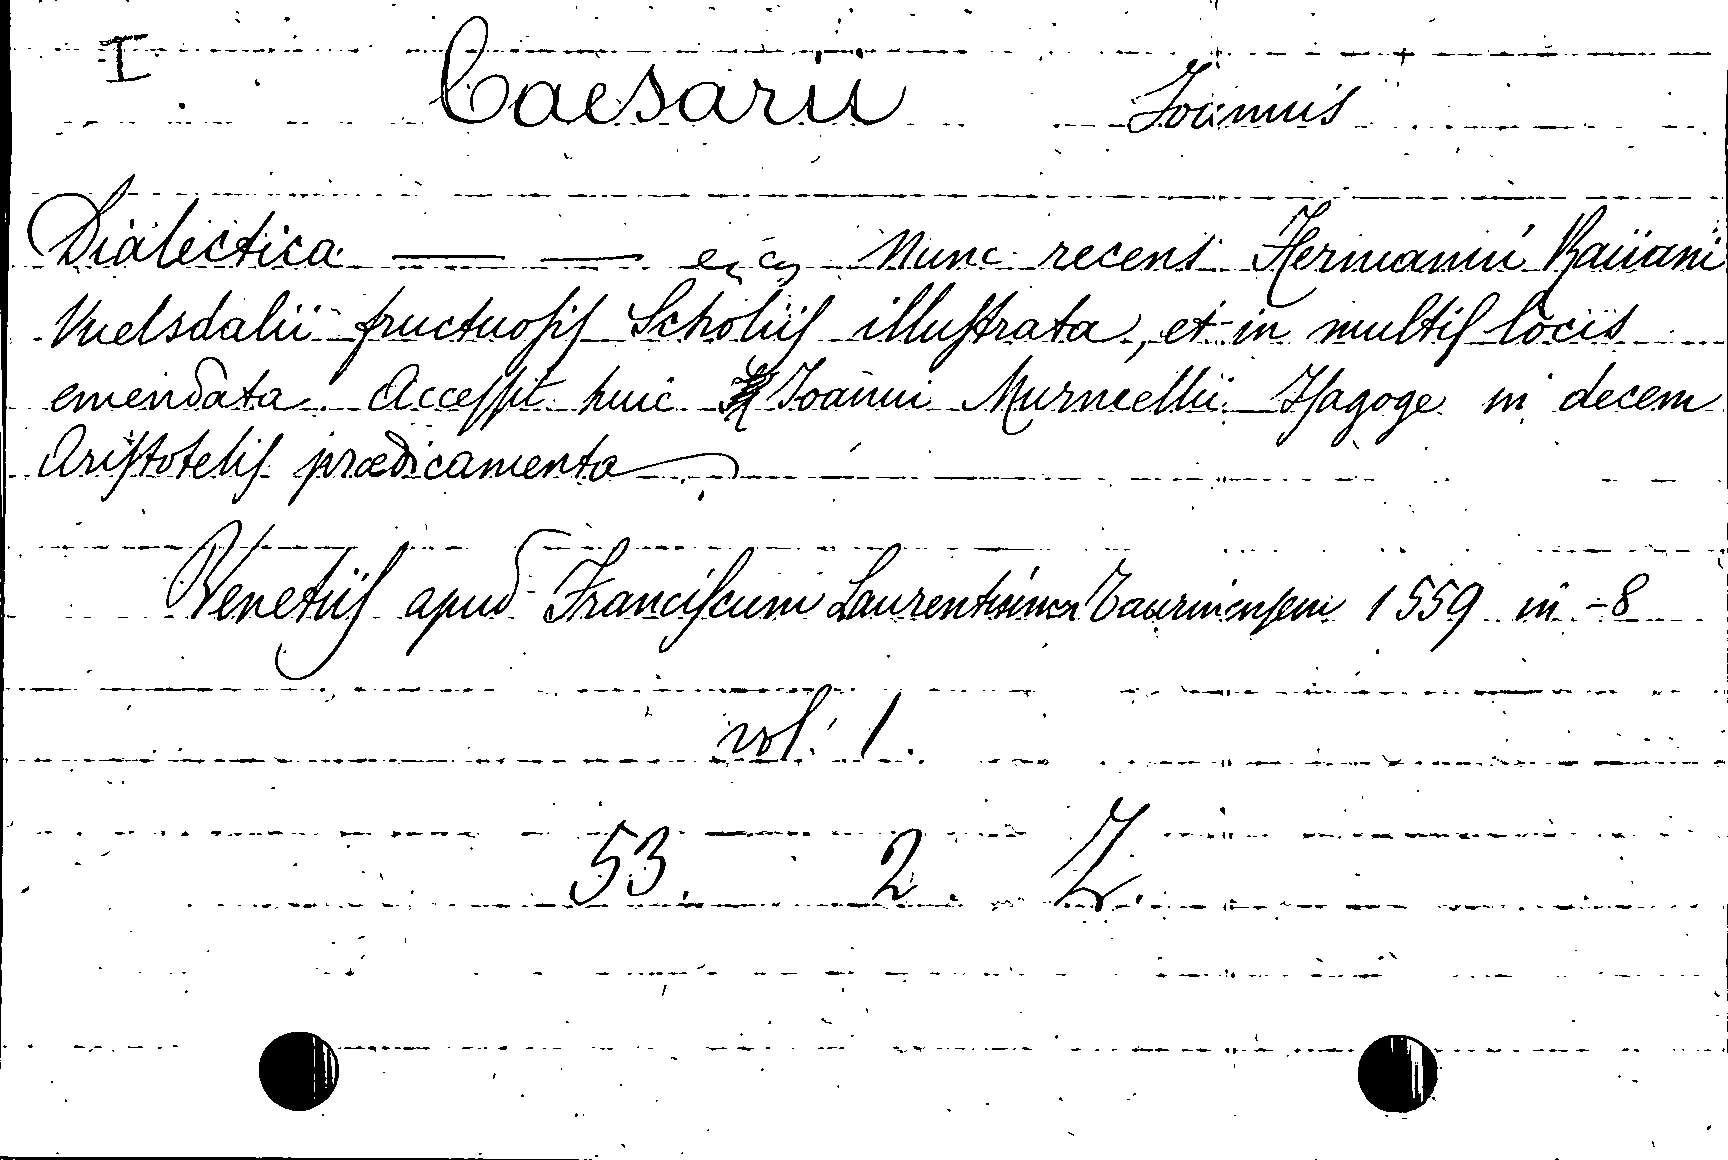 I Caesarii Joannis
Dialectica — — Nunc recens Hermanni Raiiani
Vuelsdalii fructuosis Scholiis illustrata, et in multis locis
emendata. Accessit huic Joanni Murmellii Isagoge in decem
Aristotelis prædicamenta
Venetiis apud Franciscum Laurentinum Taurinensem 1559 in -8
vol. 1.
53. 2. Z.